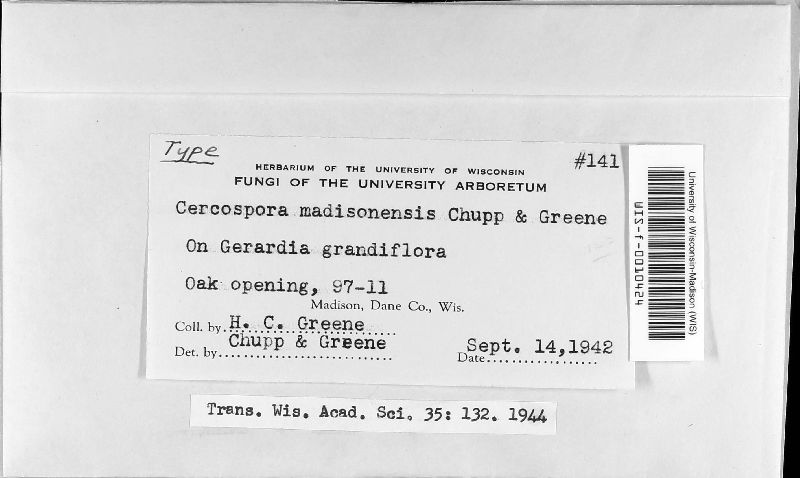 Type
#141
HERBARIUM OF THE UNIVERSITY OF WISCONSIN
FUNGI OF THE UNIVERSITY ARBORETUM
Cercospora madisonensis Chupp & Greene
On Gerardia grandiflora
Oak opening, 97-11
Madison, Dane Co., Wis.
Coll. by H. C. Greene
Det. by Chupp & Greene
Date Sept. 14,1942
Trans. Wis. Acad. Sci. 35: 132. 1944
University of Wisconsin-Madison (WIS)
WIS-f-0010424